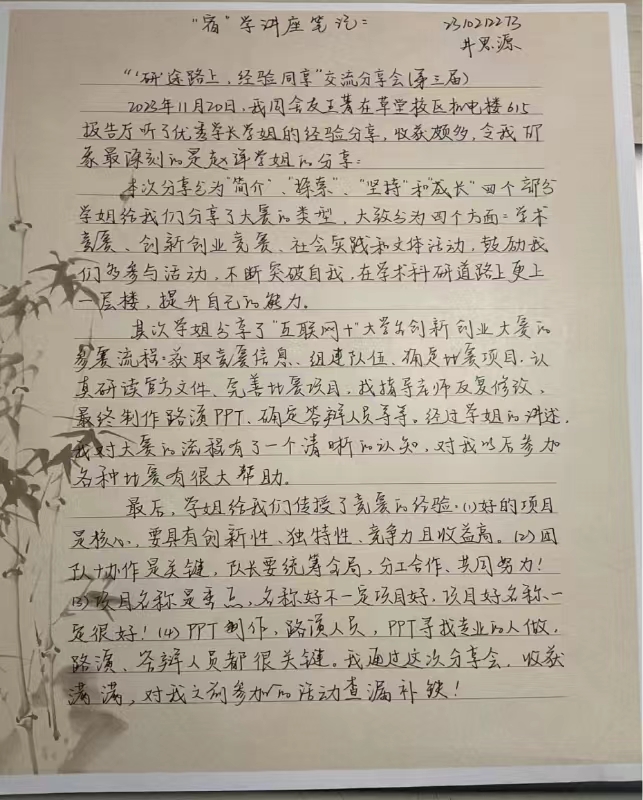 "宿"学讲座笔记：
2310212273
井思源
"'研'途路上，经验同享"交流分享会(第三届)
2023年11月20日，我同会友王菁在草堂校区机电楼615
报告厅听了优秀学长学姐的经验分享，收获颇多，令我印
象最深刻的是赵详学姐的分享：
本次分享分为"简介"、"探索"、"坚持"和"成长"四个部分
学姐给我们分享了大赛的类型，大致分为四个方面：学术
竞赛、创新创业竞赛、社会实践和文体活动，鼓励我
们多参与活动，不断突破自我，在学术科研道路上更上
一层楼，提升自己的能力。
其次学姐分享了"互联网+"大学生创新创业大赛的
参赛流程：获取竞赛信息、组建队伍、确定比赛项目、认
真研读官方文件、完善比赛项目，找指导老师反复修改、
最终制作路演PPT、确定答辩人员等等。经过学姐的讲述，
我对大赛的流程有了一个清晰的认知，对我以后参加
各种比赛有很大帮助。
最后，学姐给我们传授了竞赛的经验.(1)好的项目
是核心，要具有创新性、独特性、竞争力且收益高。(2)团
队协作是关键，队长要统筹全局，分工合作、共同努力！
(3)项目名称是卖点，名称好不一定项目好，项目好名称一
定很好！(4)PPT制作，路演人员，PPT寻找专业的人做，
路演、答辩人员都很关键。我通过这次分享会，收获
满满，对我之前参加的活动查漏补缺！